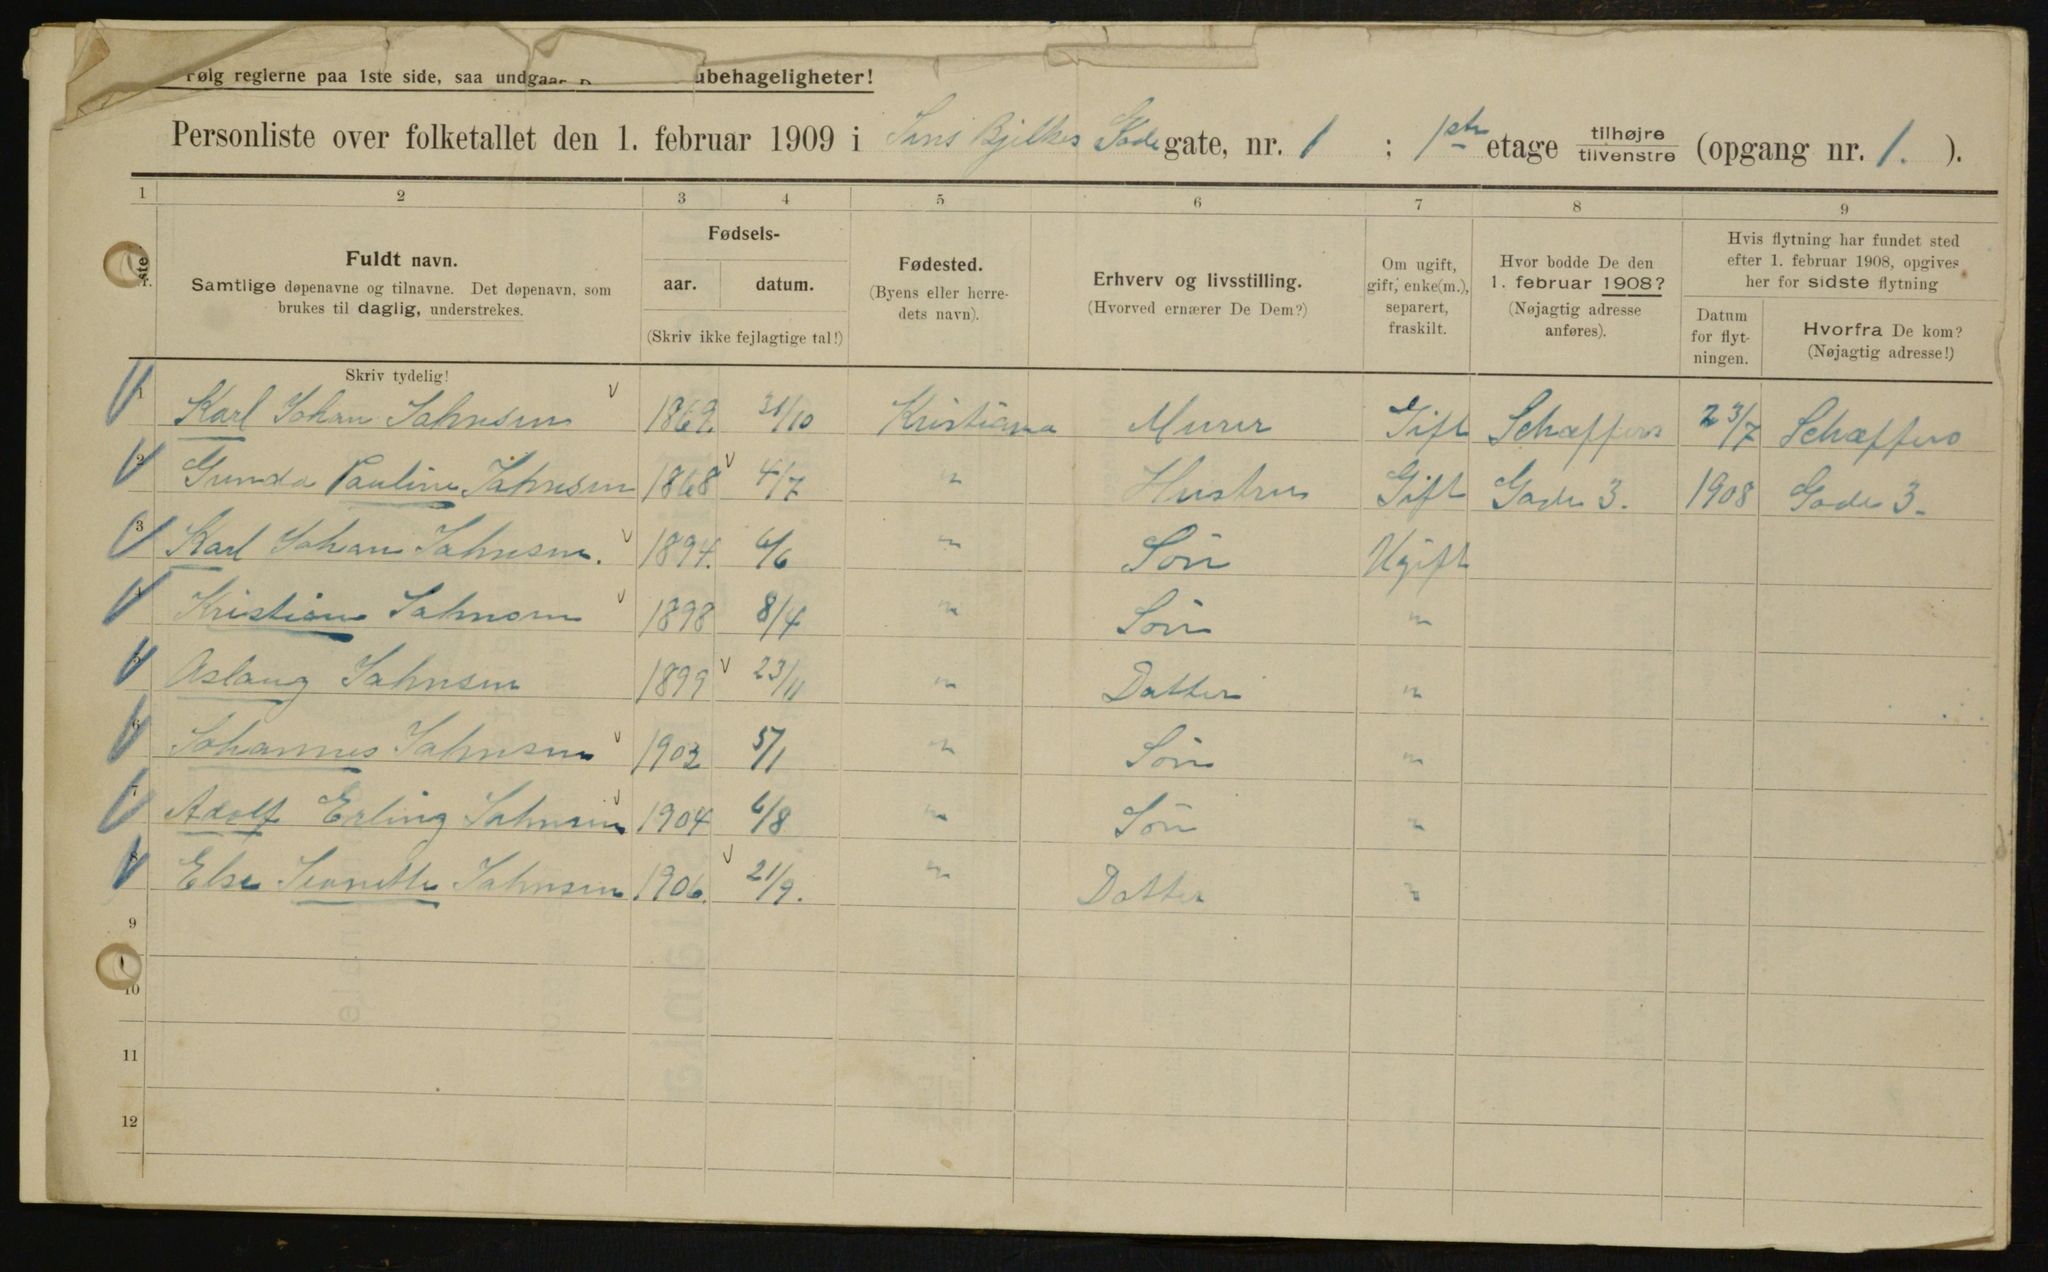 Følg reglerne paa 1ste side, saa undgaas ubehageligheter!
Personliste over folketallet den 1. februar 1909 i Jens Bjelkes Gade gate, nr. 1 ; 1ste etage tilhøjre tilvenstre (opgang nr. 1. ).
1 2 3 4 5 6 7 8 9
Fuldt navn.
Samtlige døpenavne og tilnavne. Det døpenavn, som
brukes til daglig, understrekes.
Skriv tydelig!
Fødsels-
aar. datum.
(Skriv ikke fejlagtige tal!)
Fødested.
(Byens eller herre-
dets navn).
Erhverv og livsstilling.
(Hvorved ernærer De Dem?)
Om ugift,
gift, enke(m.),
separert,
fraskilt.
Hvor bodde De den
1. februar 1908?
(Nøjagtig adresse
anføres).
Hvis flytning har fundet sted
efter 1. februar 1908, opgives
her for sidste flytning
Datum
for flyt-
ningen.
Hvorfra De kom?
(Nøjagtig adresse!)
1 Karl Johan Jahnsen 1869. 31/10 Kristiana Murer Gift Schæffers 23/7 Schæffers
2 Gunda Pauline Jahnsen 1868 4/7 " Hustru Gift Gade 3. 1908 Gade 3.
3 Karl Johan Jahnsen. 1894. 6/6 " Søn Ugift
4 Kristian Jahnsen 1898 8/4 " Søn "
5 Aslaug Jahnsen 1899 23/11 " Datter "
6 Johannes Jahnsen 1902 5/1 " Søn "
7 Adolf Erling Jahnsen 1904 6/8 " Søn "
8 Else Jeanette Jahnsen 1906. 21/9. " Datter "
9
10
11
12